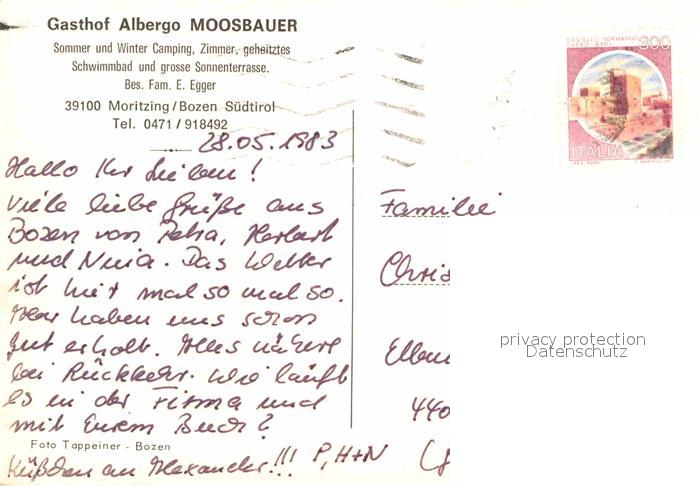 Gasthof Albergo MOOSBAUER
Sommer und Winter Camping, Zimmer, geheitztes
Schwimmbad und grosse Sonnenterrasse.
Bes. Fam. E. Egger
39100 Moritzing/Bozen Südtirol
Tel. 0471/918492
28.05.1983
Hallo Ihr Lieben!
Viele liebe Grüße aus
Bozen von Petra, Herbert
und Nina. Das Wetter
ist hier mal so mal so.
Wir haben uns schon
gut erholt. Alles nähere
bei Rückkehr. Wie läuft
es in der Firma und
mit Eurem Buch?
Foto Tappeiner - Bozen
Küßchen an Alexander!!! P, H+N
CASTELLO NORMANNO
SVEVO BARI
300
ITALIA
Familie
Chris
440
privacy protection
Datenschutz